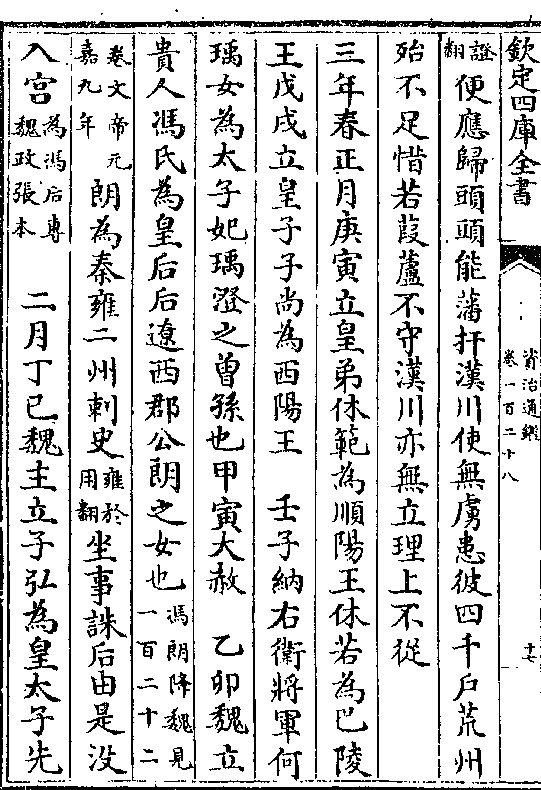 欽定四庫全書
資治通鑑
卷一百二十八
十七
證翻便應歸頭頭能藩扞漢川使無虜患彼四千戶荒州
殆不足惜若葭蘆不守漢川亦無立理上不從
三年春正月庚寅立皇弟休範為順陽王休若為巴陵
王戊戌立皇子子尚為西陽王　壬子納右衛將軍何
瑀女為太子妃瑀澄之曾孫也甲寅大赦　乙卯魏立
貴人馮氏為皇后后遼西郡公朗之女也馮朗降魏見一百二十二
卷文帝元嘉九年朗為秦雍二州刺史雍於用翻坐事誅后由是没
入宮為馮后專魏政張本　二月丁巳魏主立子弘為皇太子先